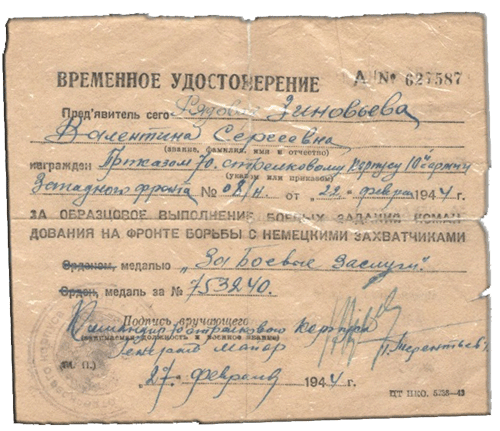 ВРЕМЕННОЕ УДОСТОВЕРЕНИЕ А №627587
Пред'явитель сего Рядовой Зиновьева
Валентина Сергеевна
(звание, фамилия, имя и отчество)
награжден Приказом 70. стрелковому корпусу 10й армии
(указом или приказом)
Западного фронта № 02/н от „22" февраля 1944 г.
ЗА ОБРАЗЦОВОЕ ВЫПОЛНЕНИЕ БОЕВЫХ ЗАДАНИЙ КОМАН-
ДОВАНИЯ НА ФРОНТЕ БОРЬБЫ С НЕМЕЦКИМИ ЗАХВАТЧИКАМИ
Орденом, медалью „За Боевые Заслуги".
Орден, медаль за № 753240.
Подпись вручающего
Командир 70 стрелкового Корпуса
(занимаемая должность и военное звание)
Генерал Майор /Терентьев/
(М. П.)
„27" февраля 1944 г.
ЦТ НКО.